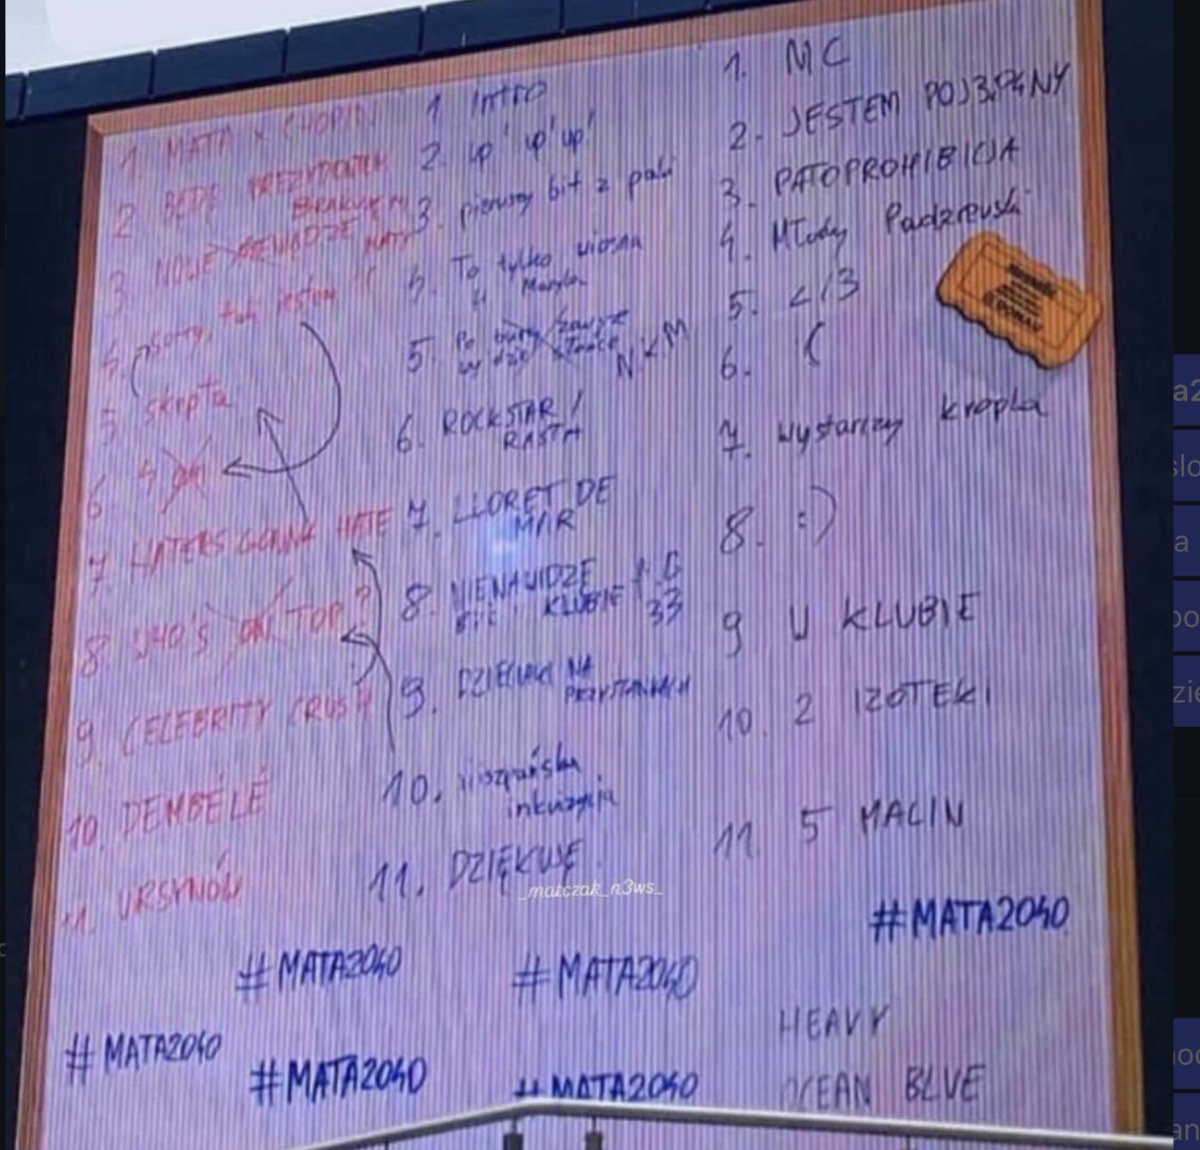 1. MATA x CHOPIN
2 BĘDĘ PREZYDENTEM
BRAKUJE M
3 NOWE PIENIĄDZE MATY
4. sorry, tak jestem
5 skepta
6
7 HATERS GONNA HATE
8 WHO'S ON TOP?
9 CELEBRITY CRUSH
10. DEMBÉLÉ
11. URSYNÓW
1 Intro
2. up' up'up'
3. pierwszy bit z pali
4. To tylko wiosna
5. Po
NKM
6. ROCKSTAR /
RASTA
7. LLORET DE
MAR
8. NIENAWIDZE
BYĆ W KLUBIE
33
9. DZIECIAKI NA
PRZYSTANKACH
10. hiszpańska
inkwizycja
11. DZIĘKUJĘ
1. MC
2. JESTEM POJ3.84NY
3. PATOPROHIBICJA
4. Młody Paderewski
5. </3
6. (
7. wystarczy kropla
8. :)
9 W KLUBIE
10 2 IZOTEKI
11. 5 MALIN
_matczak_n3ws_
#MATA2040
#MATA2040
#MATA2040
#MATA2040
#MATA2040
#MATA2040
HEAVY
OCEAN BLUE